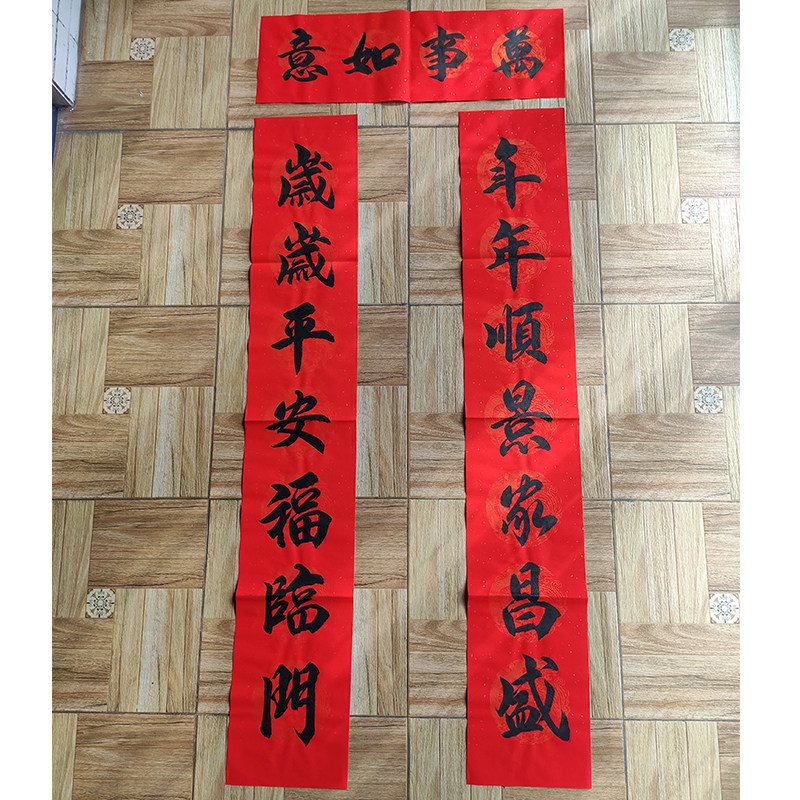 萬事如意
年年順景家昌盛
歲歲平安福臨門